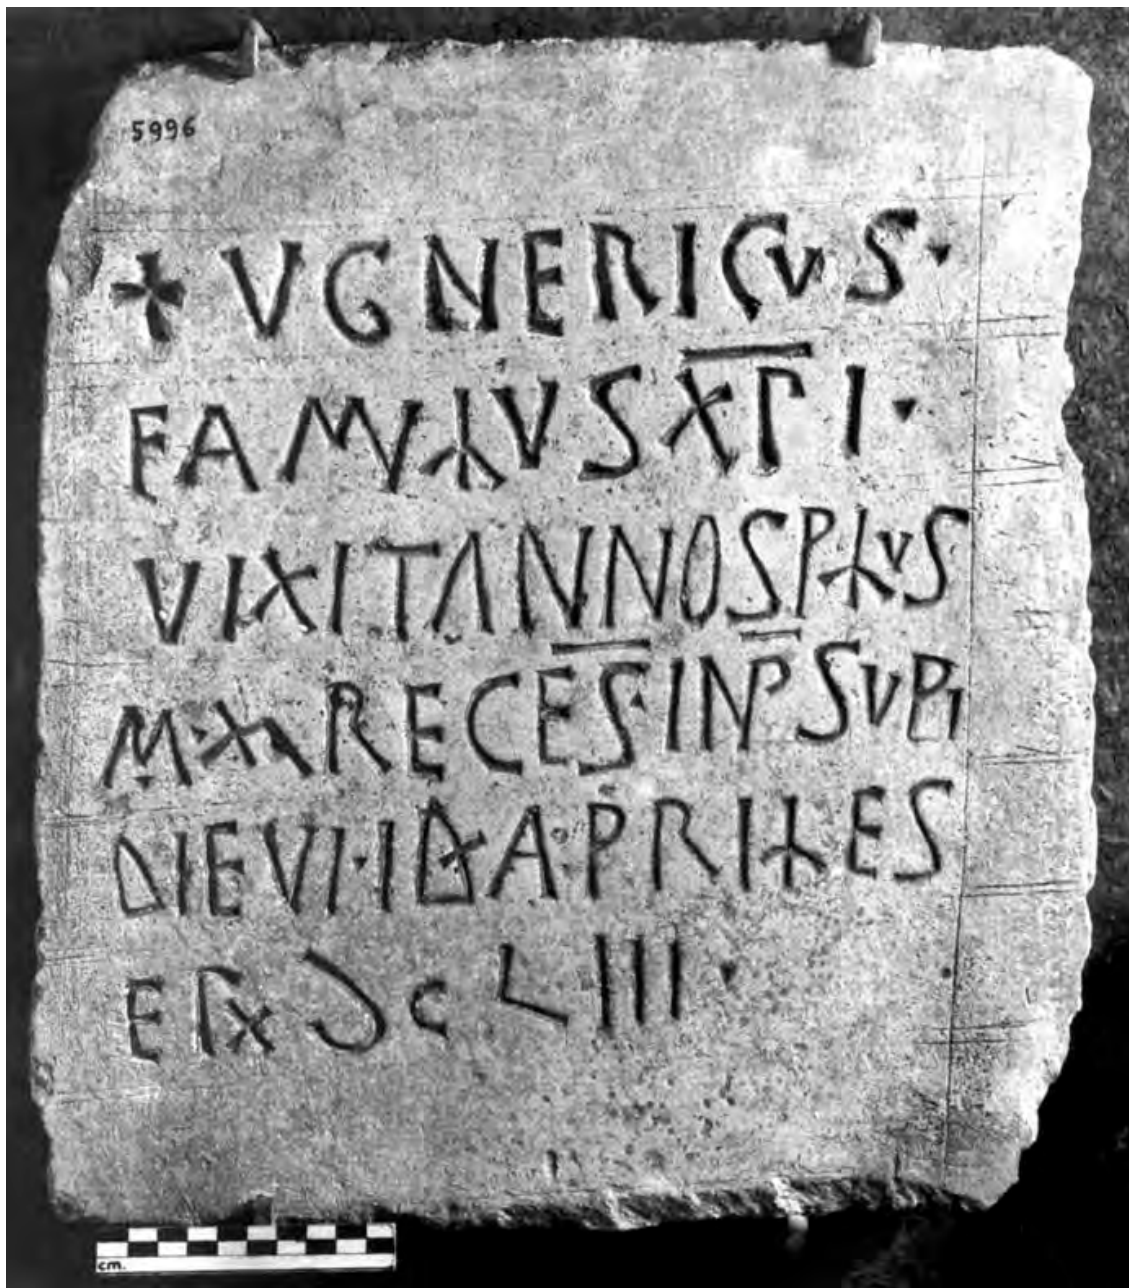 5996
✝ VGNERICVS ·
FAMILVS XPI ·
VIXIT ANNOS PLVS
M · XL RECES · IN P SVP I
DIE VI · ID APRILES
ERA DCLIII ·
cm.